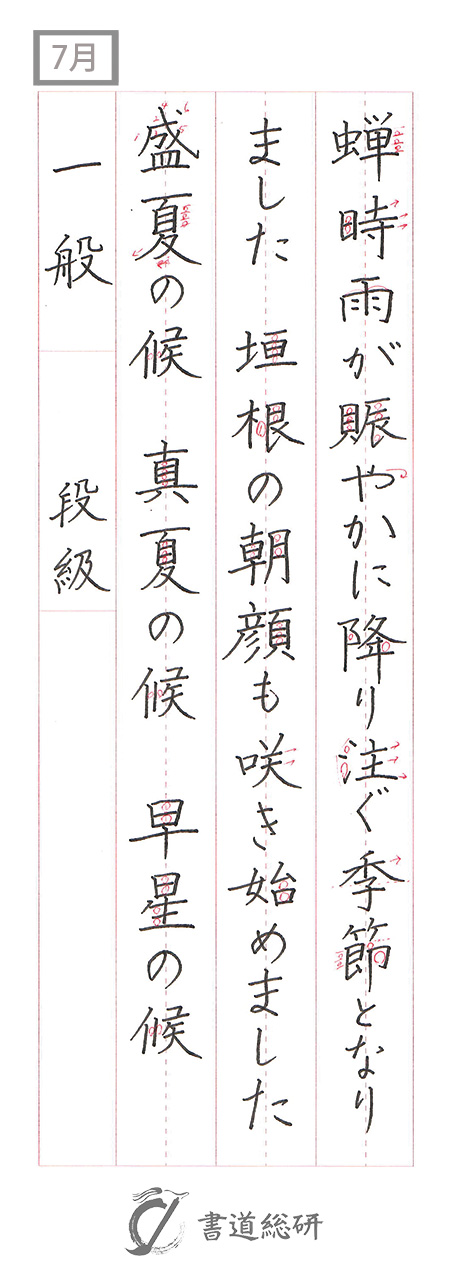 7月
蝉時雨が賑やかに降り注ぐ季節となり
ました　垣根の朝顔も咲き始めました
盛夏の候　真夏の候　早星の候
一般　段級
書道総研